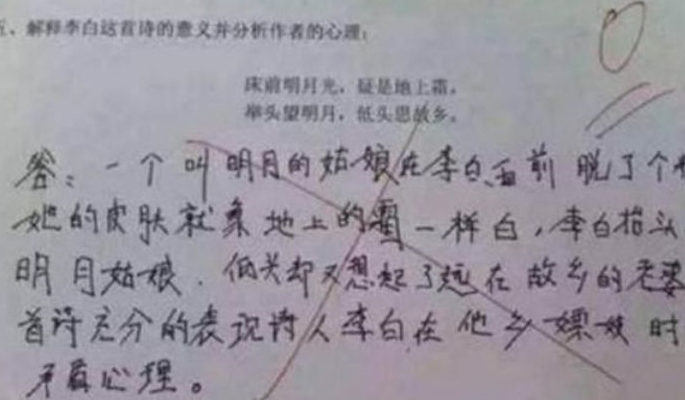 、解释李白这首诗的意义并分析作者的心理：
床前明月光，疑是地上霜。
举头望明月，低头思故乡。
答：一个叫明月的姑娘在李白面前脱了个
她的皮肤就象地上的霜一样白，李白抬头
明月姑娘．低头却又想起了远在故乡的老婆
首诗充分的表现诗人李白在他乡嫖妓时
矛盾心理。